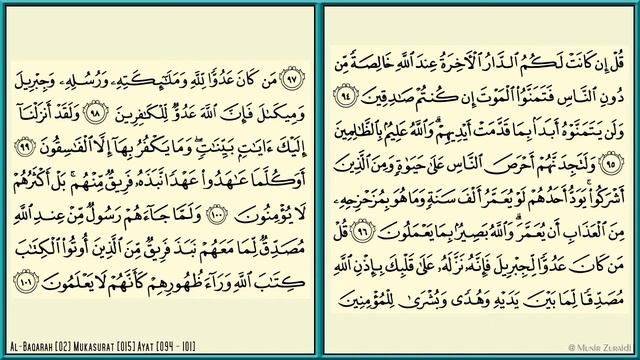 قُلْ إِن كَانَتْ لَكُمُ الدَّارُ الْآخِرَةُ عِندَ اللَّهِ خَالِصَةً مِّن
دُونِ النَّاسِ فَتَمَنَّوُا الْمَوْتَ إِن كُنتُمْ صَادِقِينَ ٩٤
وَلَن يَتَمَنَّوْهُ أَبَدًا بِمَا قَدَّمَتْ أَيْدِيهِمْ ۗ وَاللَّهُ عَلِيمٌ بِالظَّالِمِينَ
٩٥ وَلَتَجِدَنَّهُمْ أَحْرَصَ النَّاسِ عَلَىٰ حَيَوٰةٍ وَمِنَ الَّذِينَ
أَشْرَكُوا ۚ يَوَدُّ أَحَدُهُمْ لَوْ يُعَمَّرُ أَلْفَ سَنَةٍ وَمَا هُوَ بِمُزَحْزِحِهِ
مِنَ الْعَذَابِ أَن يُعَمَّرَ ۗ وَاللَّهُ بَصِيرٌ بِمَا يَعْمَلُونَ ٩٦ قُلْ
مَن كَانَ عَدُوًّا لِّجِبْرِيلَ فَإِنَّهُ نَزَّلَهُ عَلَىٰ قَلْبِكَ بِإِذْنِ اللَّهِ
مُصَدِّقًا لِّمَا بَيْنَ يَدَيْهِ وَهُدًى وَبُشْرَىٰ لِلْمُؤْمِنِينَ
@ Munir Zuraidi
٩٧ مَن كَانَ عَدُوًّا لِّلَّهِ وَمَلَٰئِكَتِهِ وَرُسُلِهِ وَجِبْرِيلَ
وَمِيكَىٰلَ فَإِنَّ اللَّهَ عَدُوٌّ لِّلْكَٰفِرِينَ ٩٨ وَلَقَدْ أَنزَلْنَا
إِلَيْكَ ءَايَٰتٍ بَيِّنَٰتٍ ۖ وَمَا يَكْفُرُ بِهَا إِلَّا الْفَاسِقُونَ ٩٩
أَوَكُلَّمَا عَٰهَدُوا عَهْدًا نَّبَذَهُ فَرِيقٌ مِّنْهُم ۚ بَلْ أَكْثَرُهُمْ
لَا يُؤْمِنُونَ ١٠٠ وَلَمَّا جَاءَهُمْ رَسُولٌ مِّنْ عِندِ اللَّهِ
مُصَدِّقٌ لِّمَا مَعَهُمْ نَبَذَ فَرِيقٌ مِّنَ الَّذِينَ أُوتُوا الْكِتَٰبَ
كِتَٰبَ اللَّهِ وَرَاءَ ظُهُورِهِمْ كَأَنَّهُمْ لَا يَعْلَمُونَ ١٠١
Al-Baqarah [02] Mukasurat [015] Ayat [094 - 101]